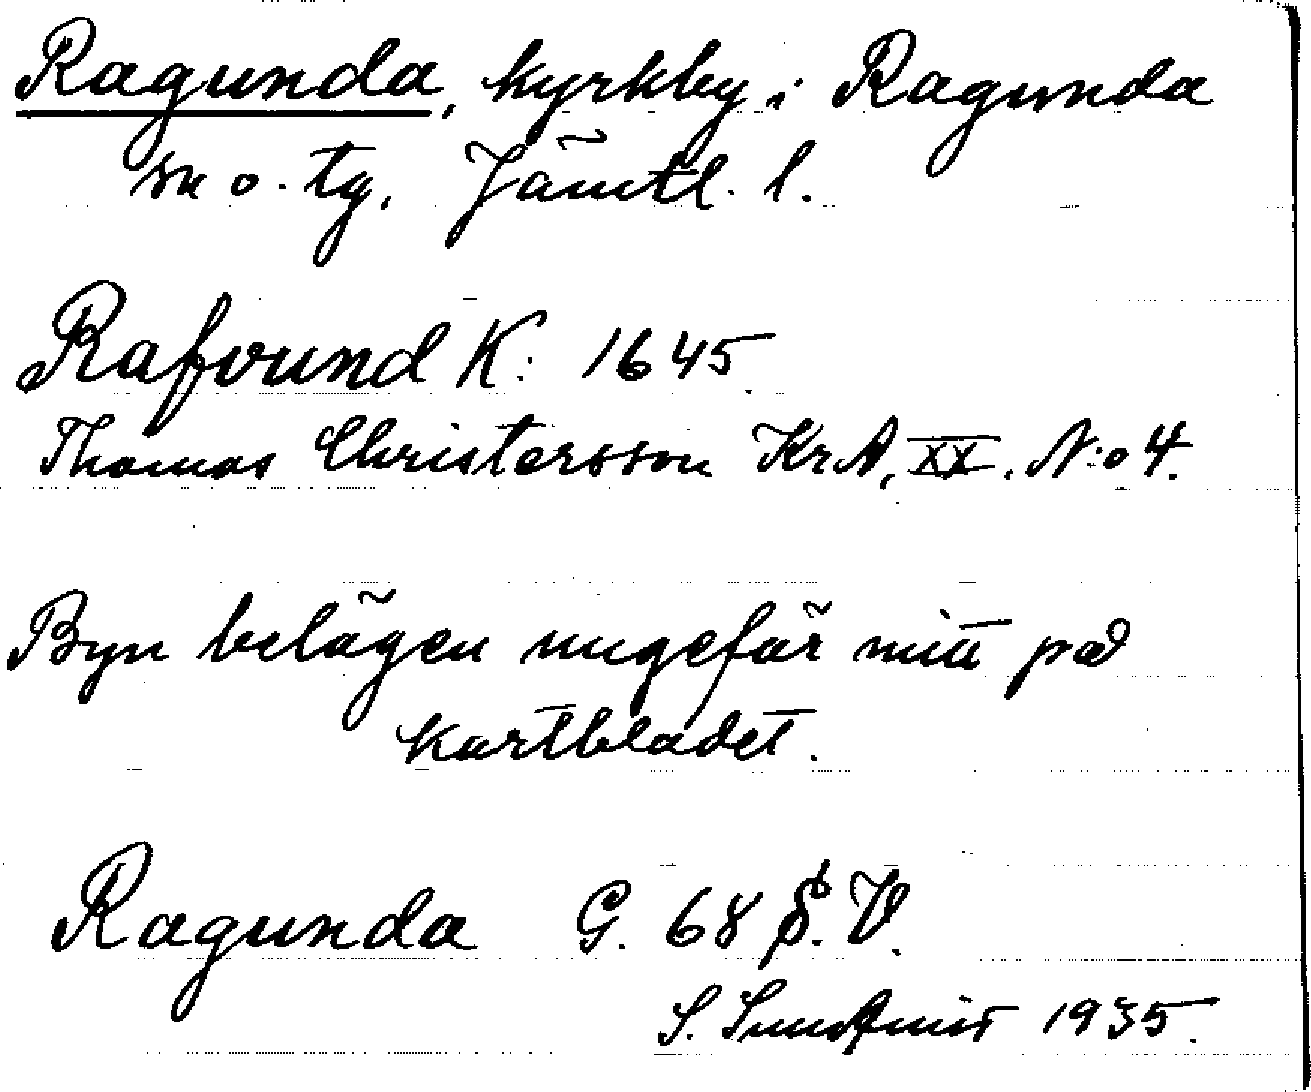 Ragunda, kyrkby i Ragunda
sn o. tg, Jämtl. l.
Rafvund K: 1645.
Thomas Christersson KrA, XX. N:o 4.
Byn belägen ungefär mitt på
kartbladet.
Ragunda G. 68 S. V.
S. Sundqvist 1935.